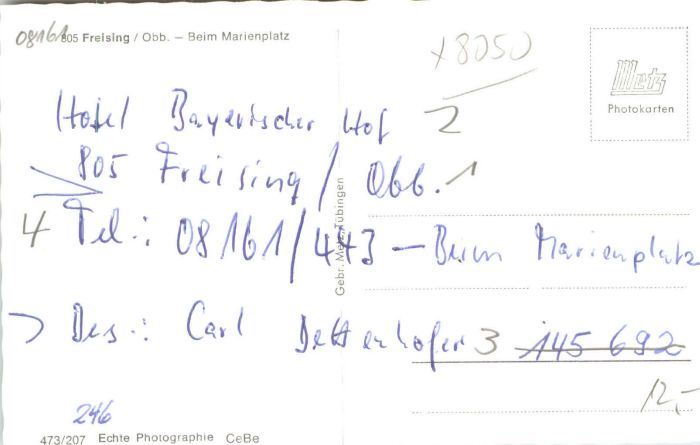 08161
805 Freising / Obb. — Beim Marienplatz
x 8050
Metz
Photokarten
Hotel Bayerischer Hof 2
805 Freising / Obb. 1
4 Tel.: 08161/443 — Beim Marienplatz
Bes.: Carl Dettenhofer 3 145 692
12,-
246
473/207 Echte Photographie CeBe
Gebr. Metz, Tübingen